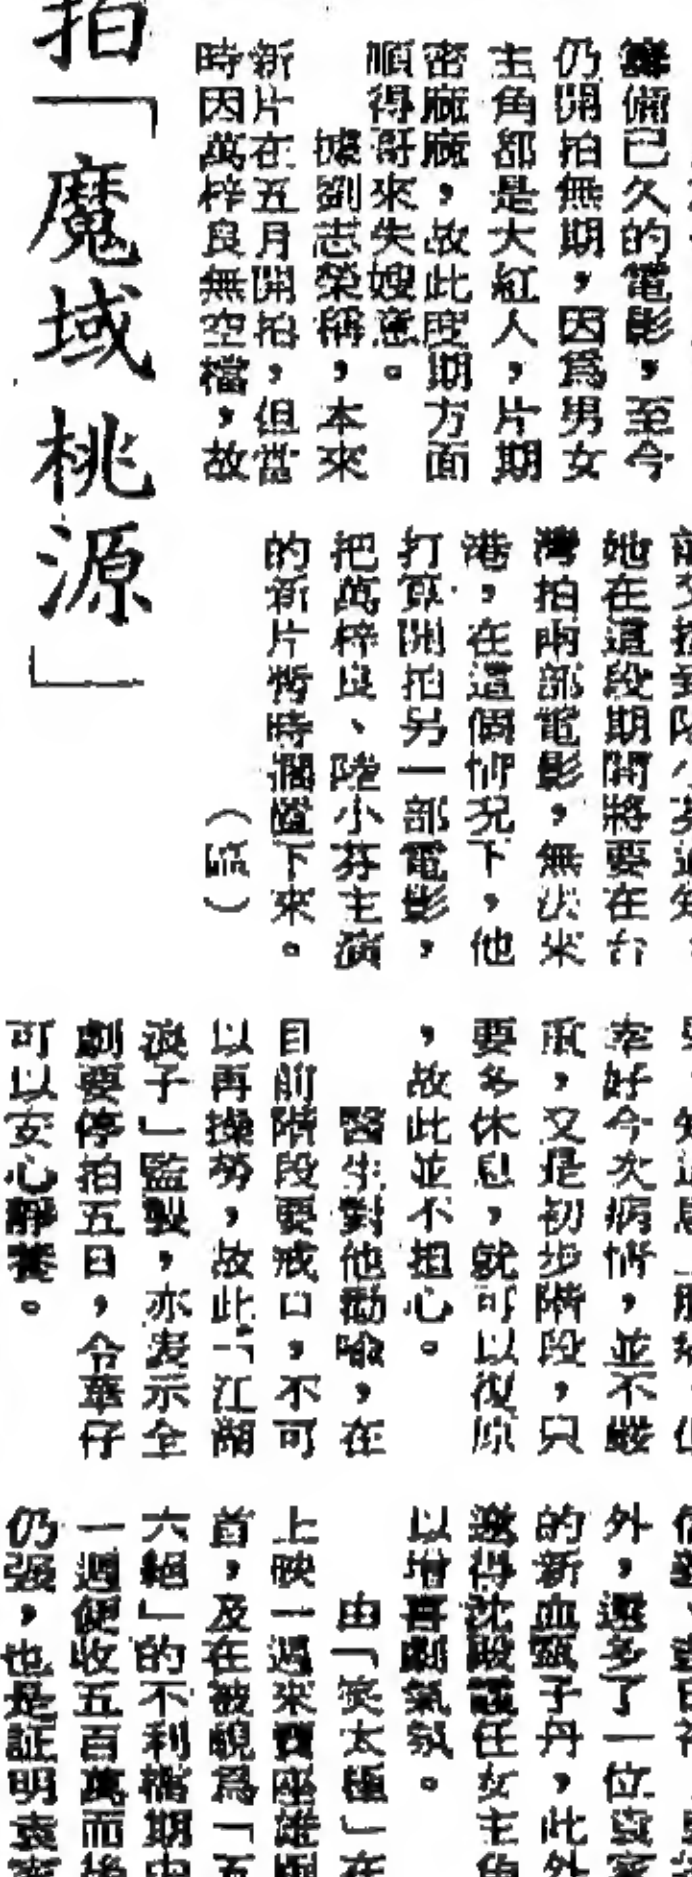 籌備已久的電影，至今
仍開拍無期，因爲男女
主角都是大紅人，片期
密廰廰，故此度期方面
順得哥來失嫂意。
據劉志榮稱，本來
新片在五月開拍，但當
時因萬梓良無空檔，故
拍「魔域桃源」
她在這段期間將要在台
灣拍兩部電影，無法來
港，在這個情况下，他
打算開拍另一部電影，
把萬梓良、陸小芬主演
的新片暫時擱置下來。
幸好今次病情，並不嚴
重，又是初步階段，只
要多休息，就可以復原
，故此並不担心。
醫生對他勸喻，在
目前階段要戒口，不可
以再操勞，故此「江湖
浪子」監製，亦表示全
劇要停拍五日，令華仔
可以安心靜養。
外，還多了一位袁家
的新血甄子丹，此外
邀得沈殿霞任女主角
以增喜劇氣氛。
由「笑太極」在
上映一週來賣座雄
首，及在被視爲「五
六絕」的不利檔期中
一週便收五百萬而後
仍强，也是証明袁家